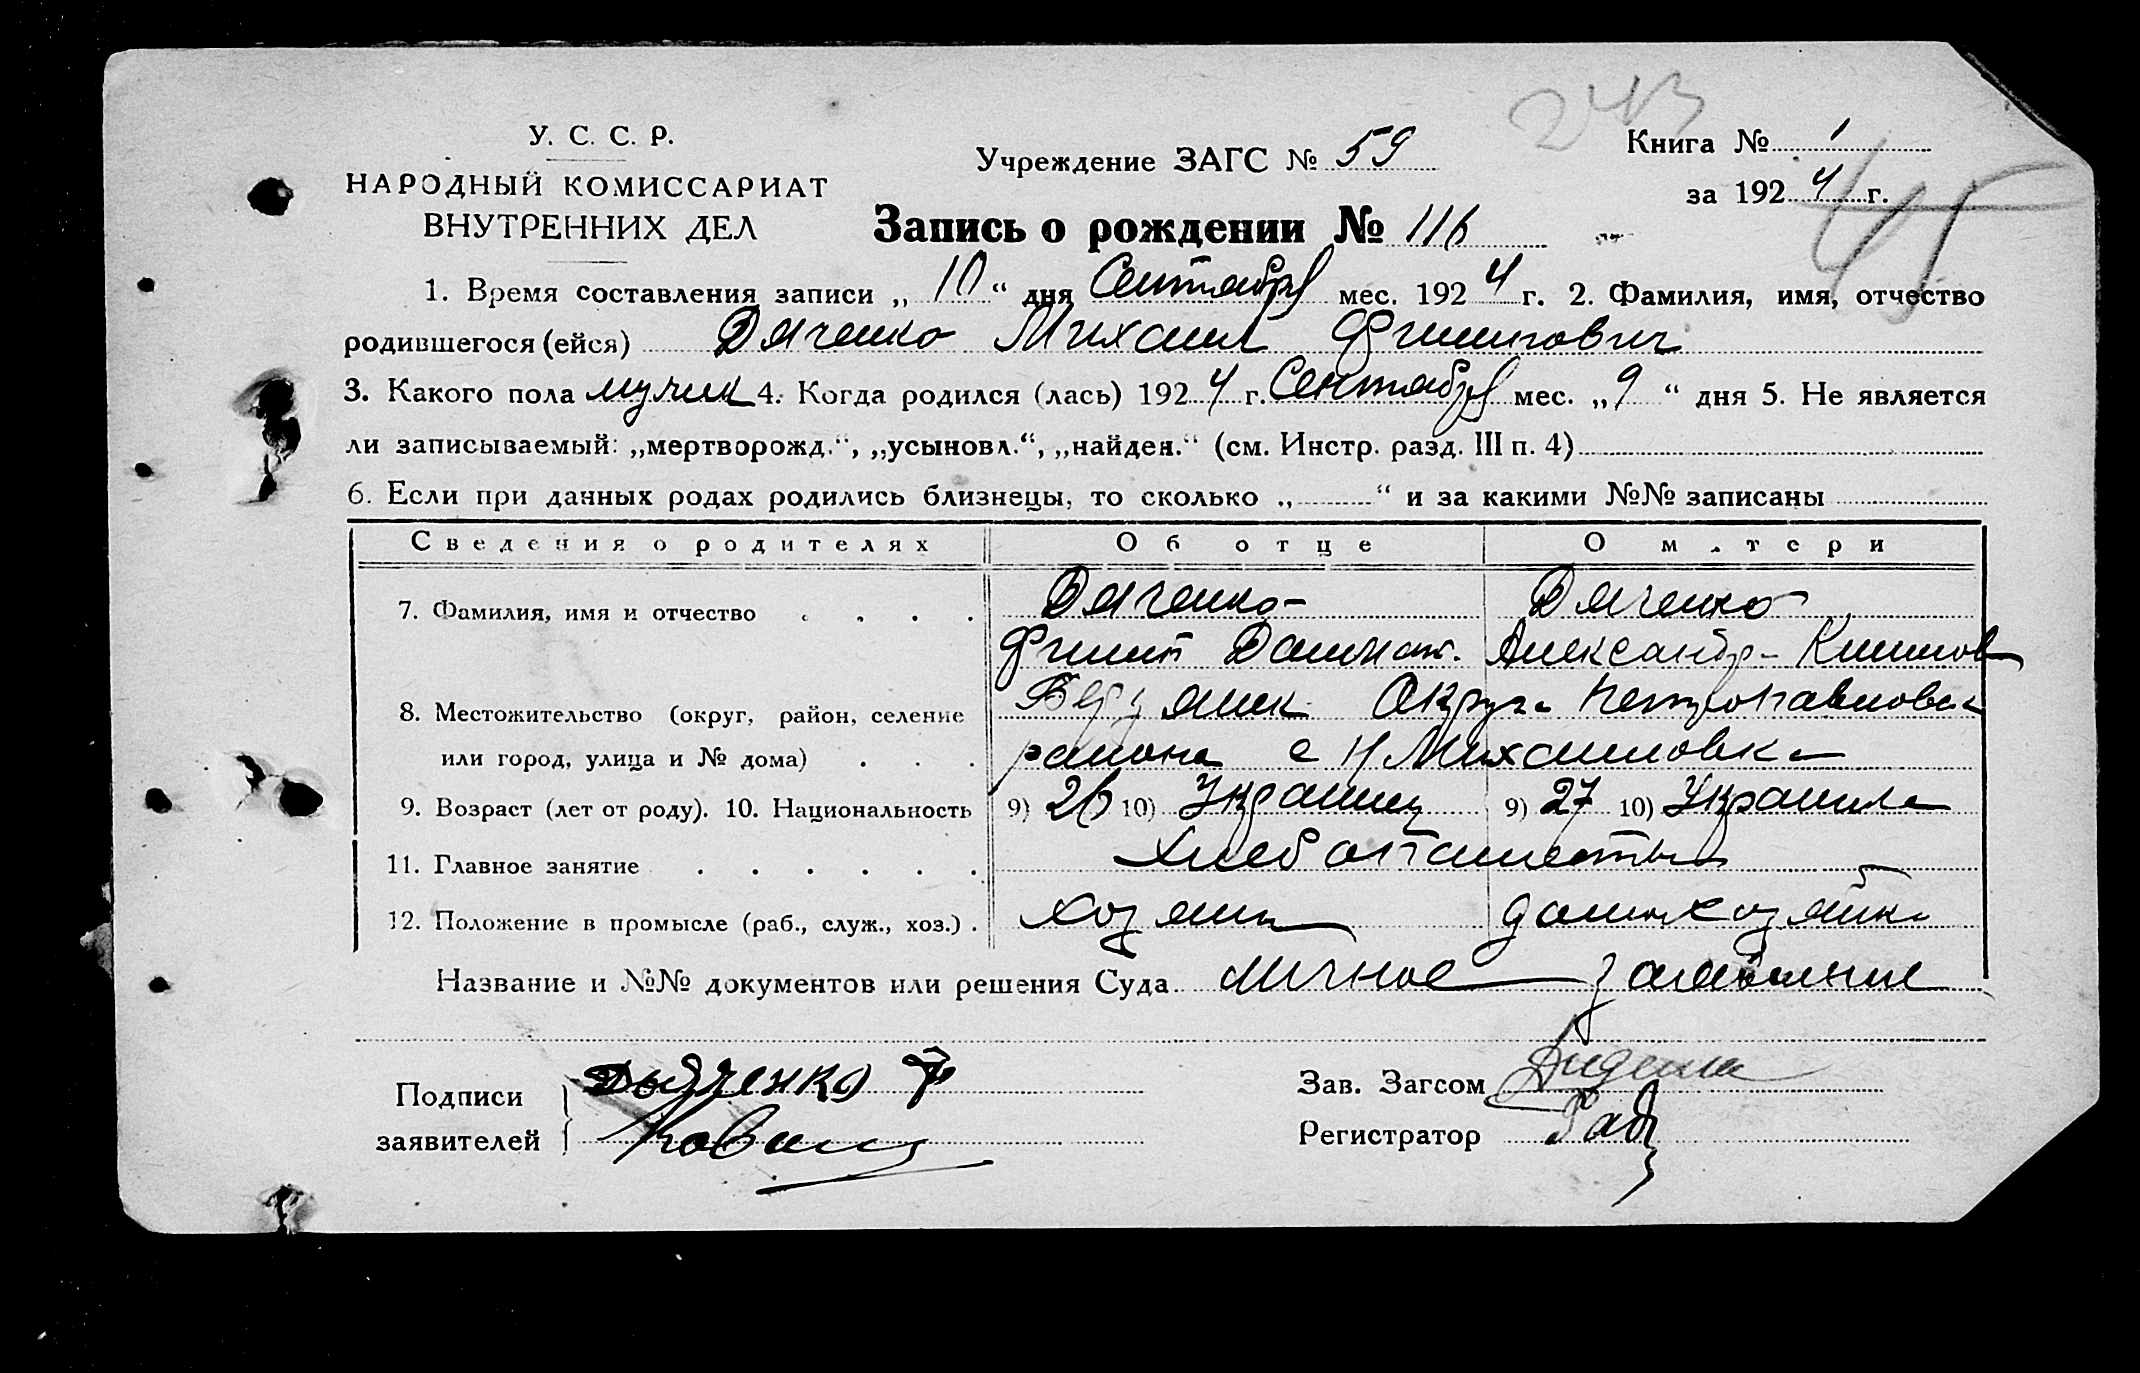 243
У. С. С. Р.
НАРОДНЫЙ КОМИССАРИАТ
ВНУТРЕННИХ ДЕЛ
Учреждение ЗАГС № 59
Книга № 1
за 1924 г.
45
Запись о рождении № 116
1. Время составления записи „10“ дня Сентября мес. 1924 г. 2. Фамилия, имя, отчество
родившегося (ейся) Дяченко Михаил Филипович
3. Какого пола мужск 4. Когда родился (лась) 1924 г. Сентября мес. „9“ дня 5. Не является
ли записываемый: „мертворожд.“, „усыновл.“, „найден.“ (см. Инстр. разд. III п. 4)
6. Если при данных родах родились близнецы, то сколько „ “ и за какими №№ записаны
Сведения о родителях Об отце О матери
7. Фамилия, имя и отчество Дяченко Дяченко
Филип Александр Климов
8. Местожительство (округ, район, селение Бердянск Округа Петропавловск
или город, улица и № дома) района с Н Михайловка
9. Возраст (лет от роду). 10. Национальность 9) 26 10) Украинец 9) 27 10) Украинка
11. Главное занятие Хлебопашество
12. Положение в промысле (раб., служ., хоз.) хозяин домохозяйка
Название и №№ документов или решения Суда личное заявление
Подписи заявителей Дьяченко Ф
Зав. Загсом
Регистратор